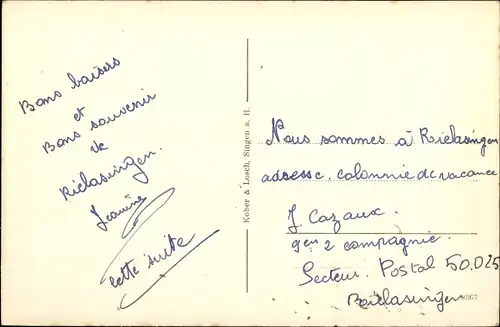 Bons baisers
et
Bons souvenir
de
Rielasingen.
Jeanine
cette suite
Kober & Losch, Singen a. H.
Nous sommes à Rielasingen
adresse. colonnie de vacance
J. Cazaux.
2 compagnie.
Secteur. Postal 50.025
Rielasingen